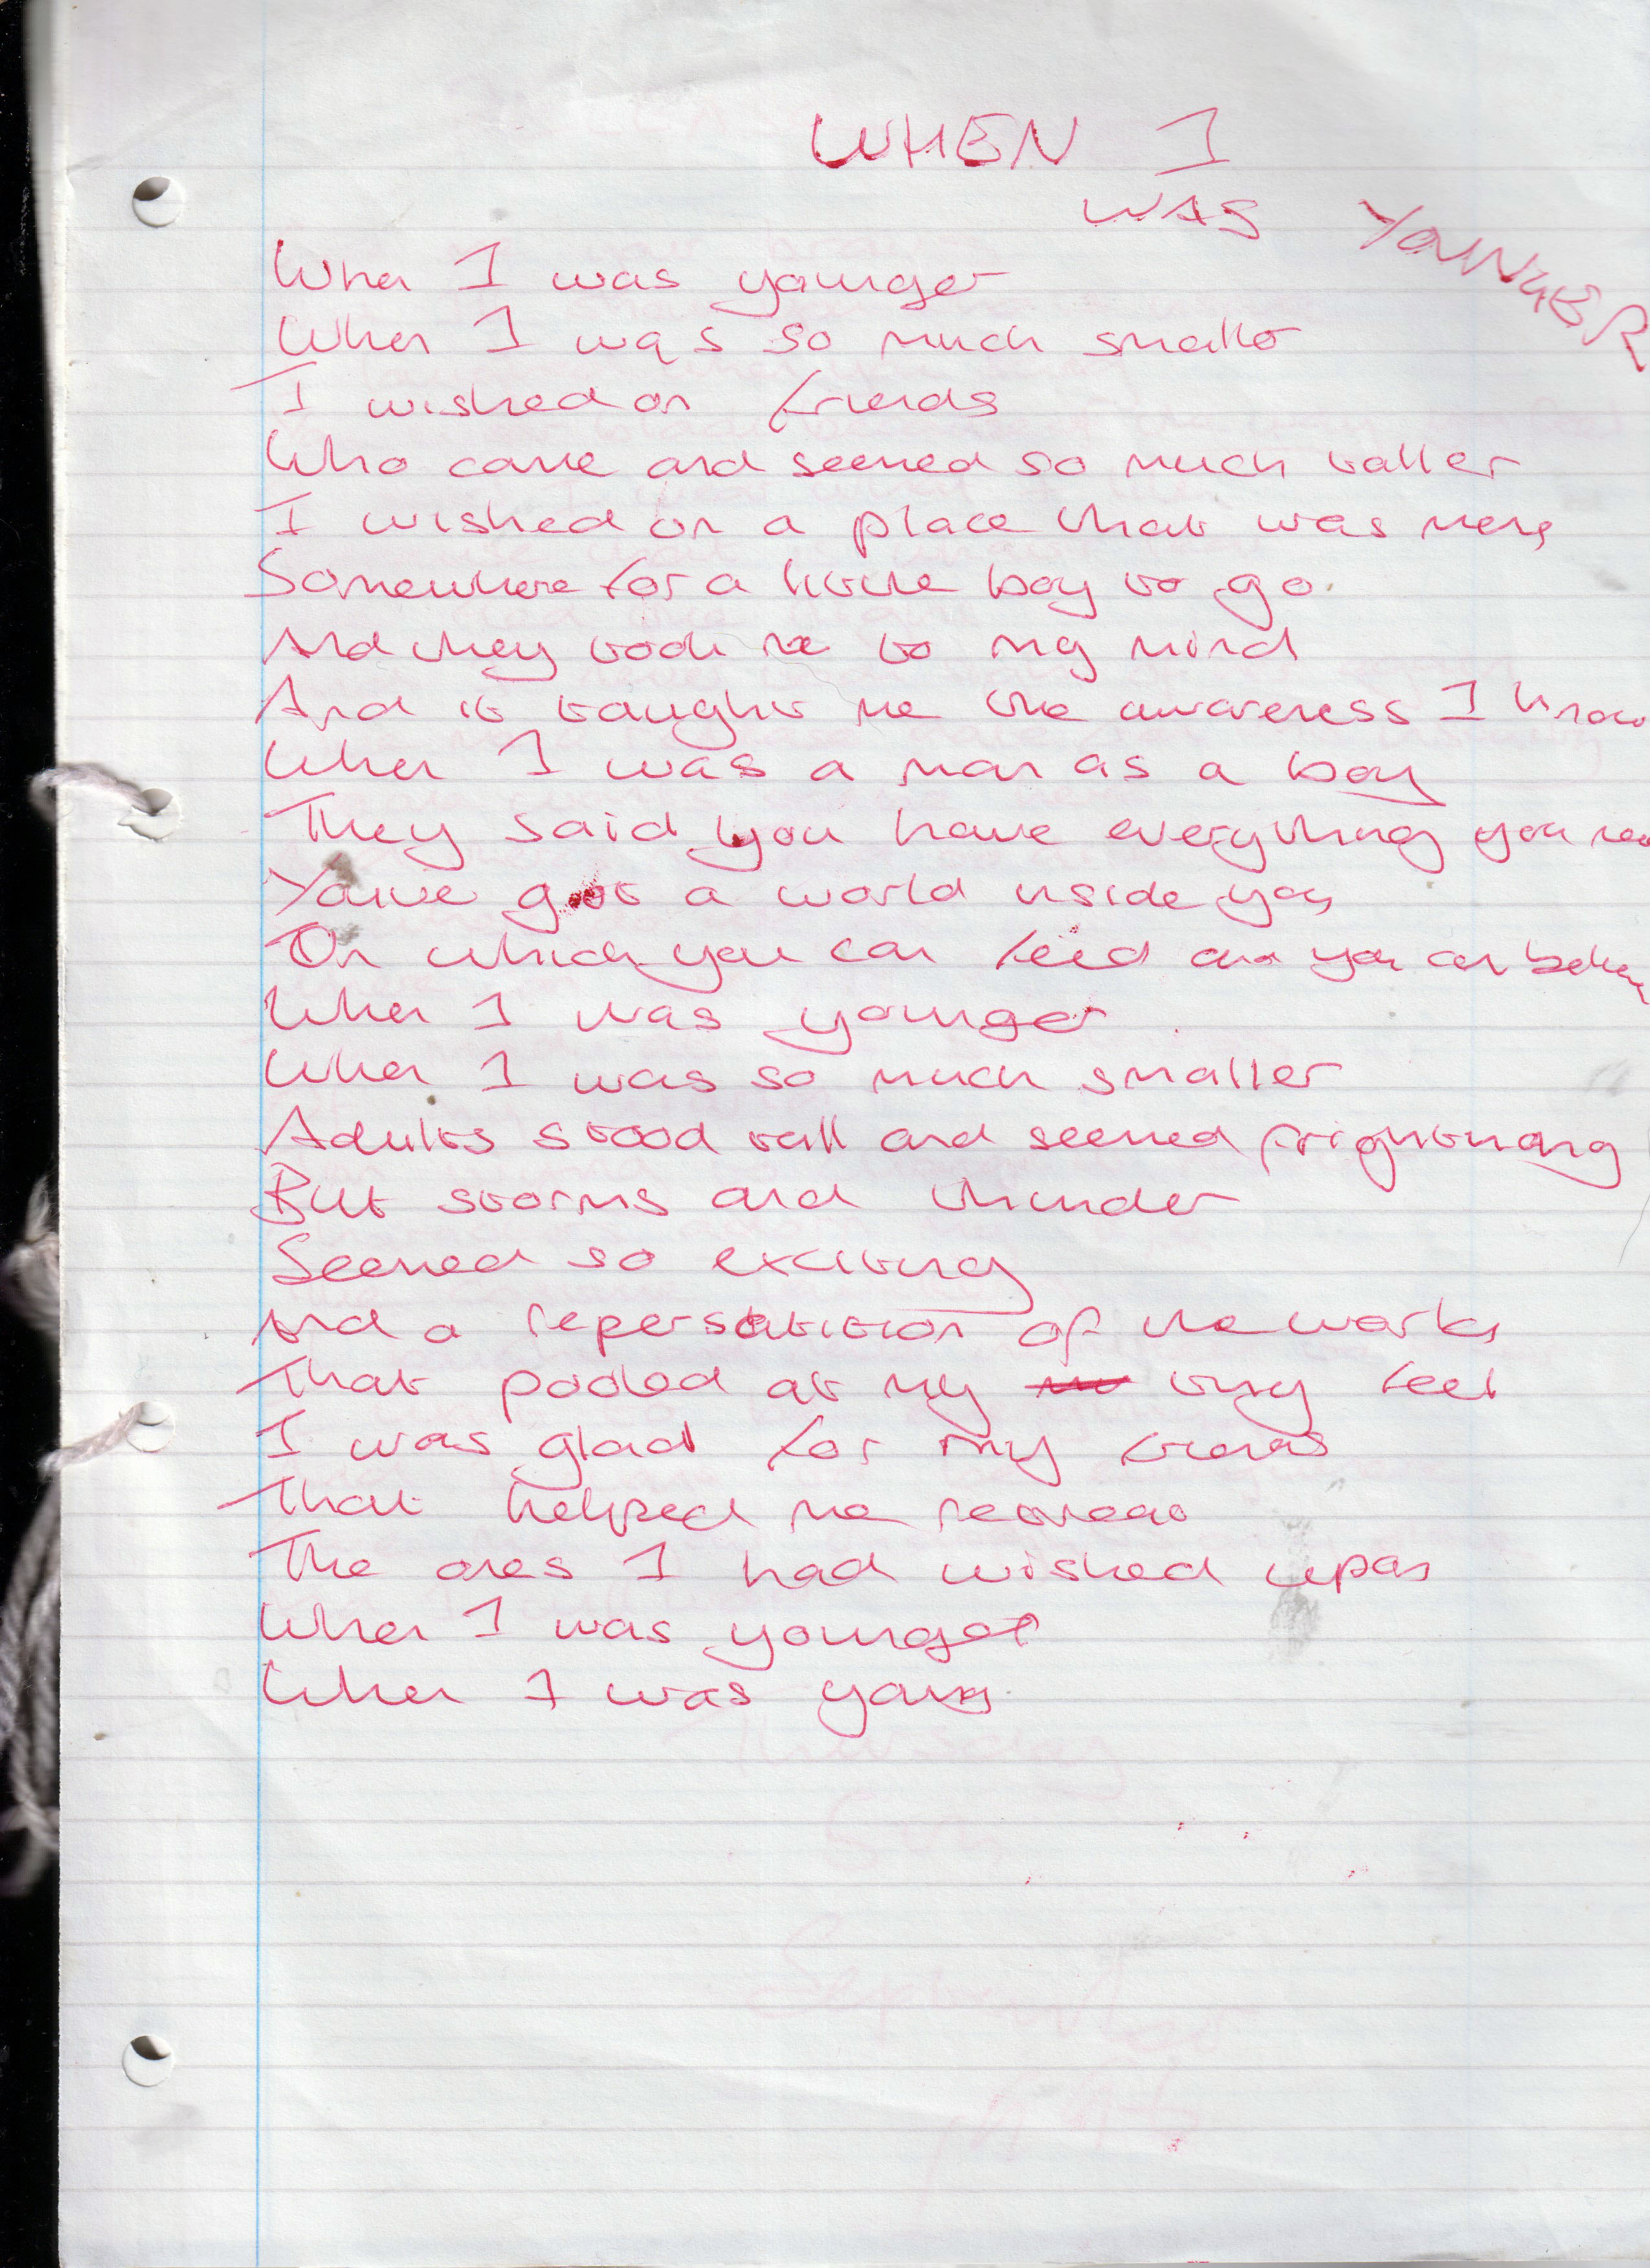 WHEN I
WAS YOUNGER
When I was younger
When I was so much smaller
I wished on friends
Who came and seemed so much taller
I wished on a place that was mine
Somewhere for a little boy to go
And they took me to my mind
And it taught me the awareness I know
When I was a man as a boy
They said you have everything you nee
You've got a world inside you
On which you can feed and you can believe
When I was younger
When I was so much smaller
Adults stood tall and seemed frightning
But storms and thunder
Seemed so exciting
And a of the works
That pooled at my tiny feet
I was glad for my friends
That helped me retreat
The ones I had wished upon
When I was younger
When I was young